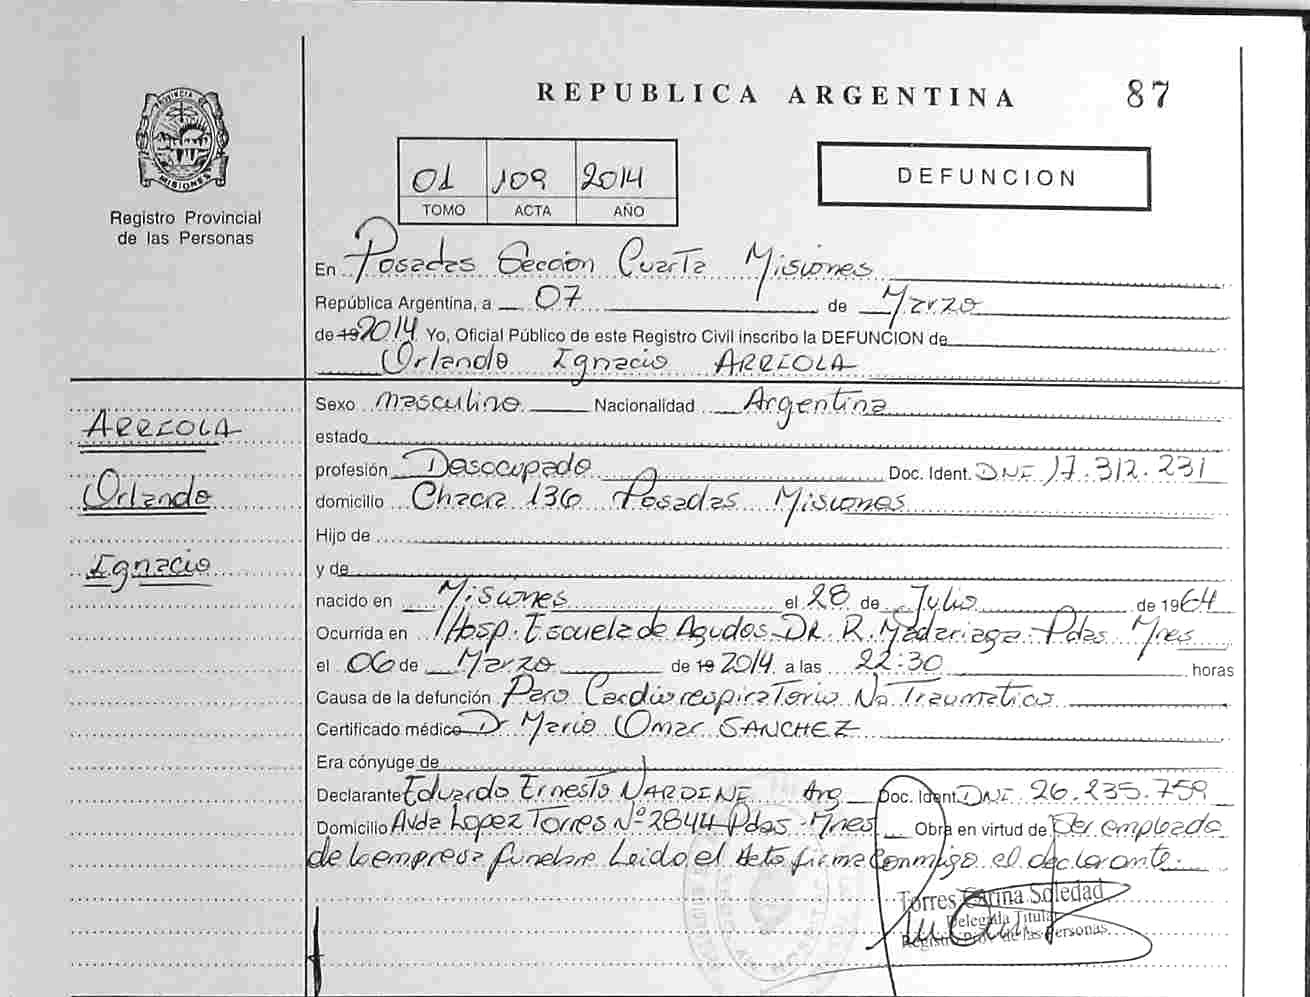 REPUBLICA ARGENTINA 87
PROVINCIA DE MISIONES
Registro Provincial
de las Personas
01 109 2014
TOMO ACTA AÑO
DEFUNCION
En Posadas Sección Cuarta Misiones
República Argentina, a 07 de Marzo
de 19 2014 Yo, Oficial Público de este Registro Civil inscribo la DEFUNCION de
Orlando Ignacio ARRIOLA
ARRIOLA
Orlando
Ignacio
Sexo masculino Nacionalidad Argentina
estado
profesión Desocupado Doc. Ident. DNI 17.312.231
domicilio Chacra 136 Posadas Misiones
Hijo de
y de
nacido en Misiones el 28 de Julio de 1964
Ocurrida en Hosp. Escuela de Agudos DR. R. Madariaga Pdas Mnes
el 06 de Marzo de 19 2014 a las 22:30 horas
Causa de la defunción Paro Cardiorespiratorio No Traumatico
Certificado médico Dr Mario Omar SANCHEZ
Era cónyuge de
Declarante Eduardo Ernesto NARDINE Arg Doc. Ident. DNI 26.235.759
Domicilio Avda Lopez Torres Nº 2844 Pdas Mnes Obra en virtud de Ser empleado
de la empresa funebre Leido el Acta firma Conmigo el declarante.
Torres Carina Soledad
Delegada Titular
Registro Prov. de las Personas